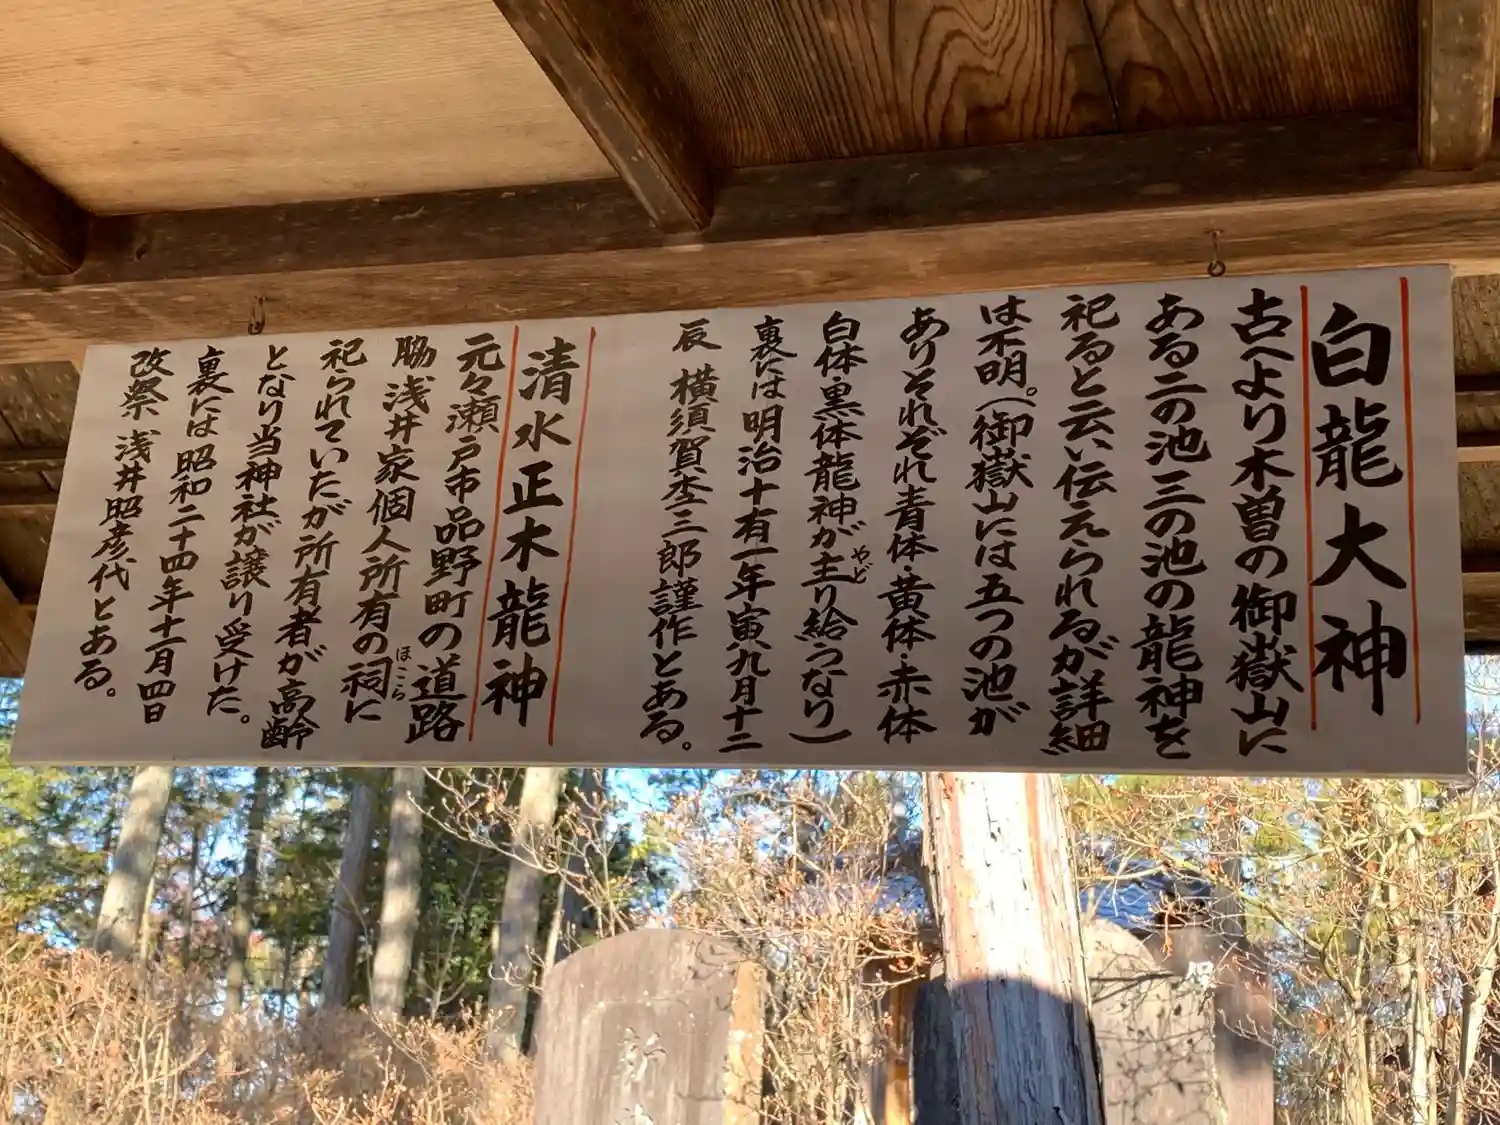 白龍大神
古へより木曽の御嶽山に
ある二の池三の池の龍神を
祀ると云い伝えられるが詳細
は不明。(御嶽山には五つの池が
ありそれぞれ青体・黄体・赤体
白体・黒体龍神が主り給うなり)
やど
裏には明治十有一年寅九月十二
辰 横須賀杢三郎謹作とある。
清水正木龍神
元々瀬戸市品野町の道路
脇浅井家個人所有の祠に
ほこら
祀られていたが所有者が高齢
となり当神社が譲り受けた。
裏には昭和二十四年十一月四日
改祭 浅井昭彦代とある。
新